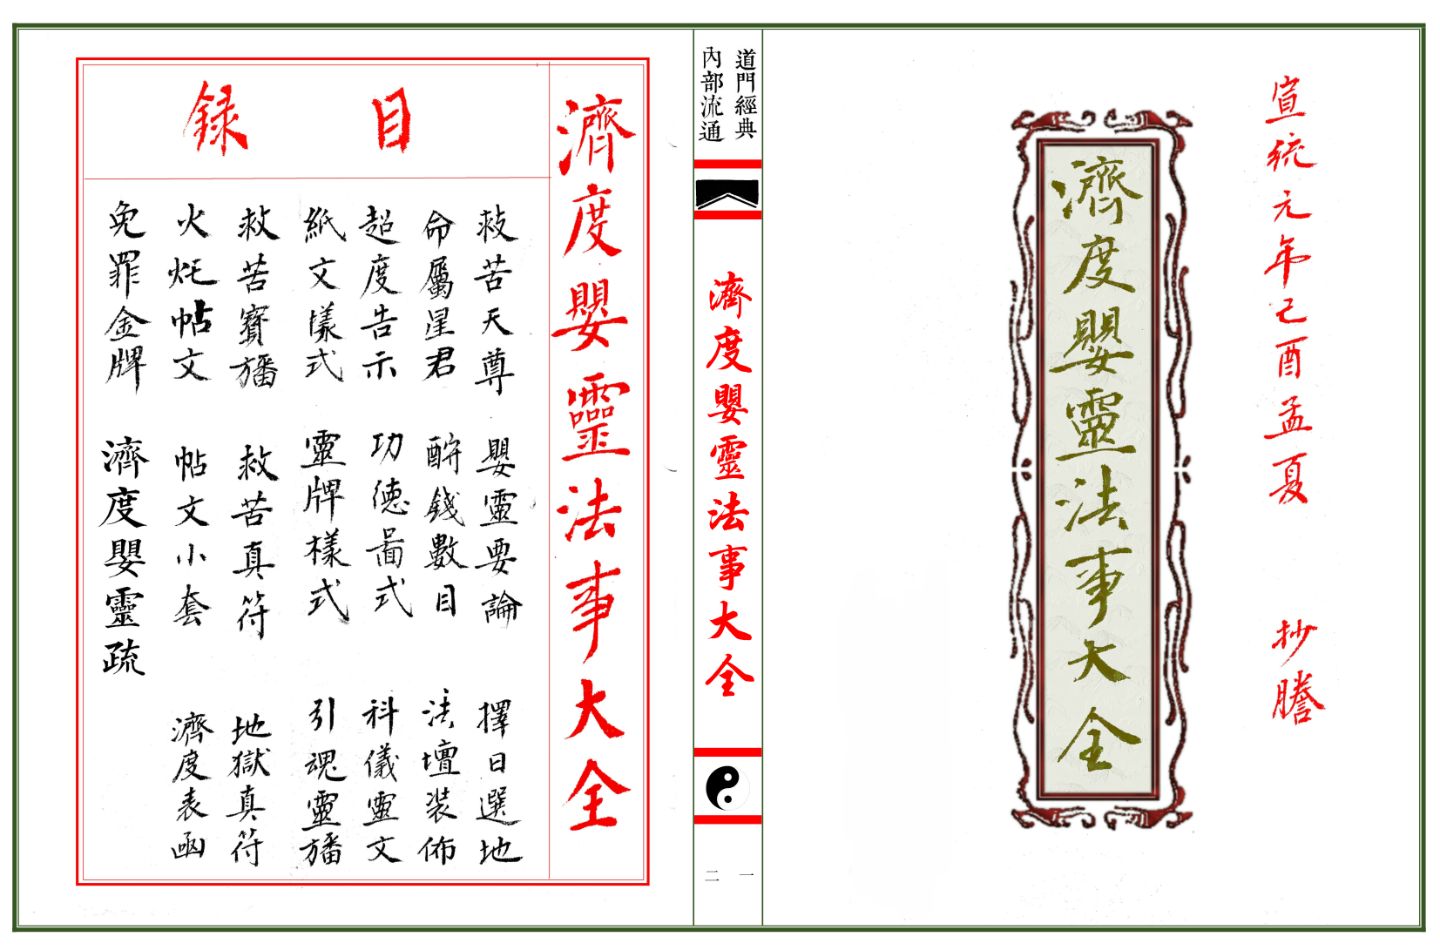 宣統元年己酉孟夏　抄謄
濟度嬰靈法事大全
道門經典
內部流通
濟度嬰靈法事大全
一
二
濟度嬰靈法事大全
目錄
救苦天尊　嬰靈要論　擇日選地
命屬星君　酧錢數目　法壇裝佈
超度告示　功德啚式　科儀靈文
紙文樣式　靈牌樣式　引魂靈旛
救苦寶旛　救苦真符　地獄真符
火炬帖文　帖文小套　濟度表函
免罪金牌　濟度嬰靈疏